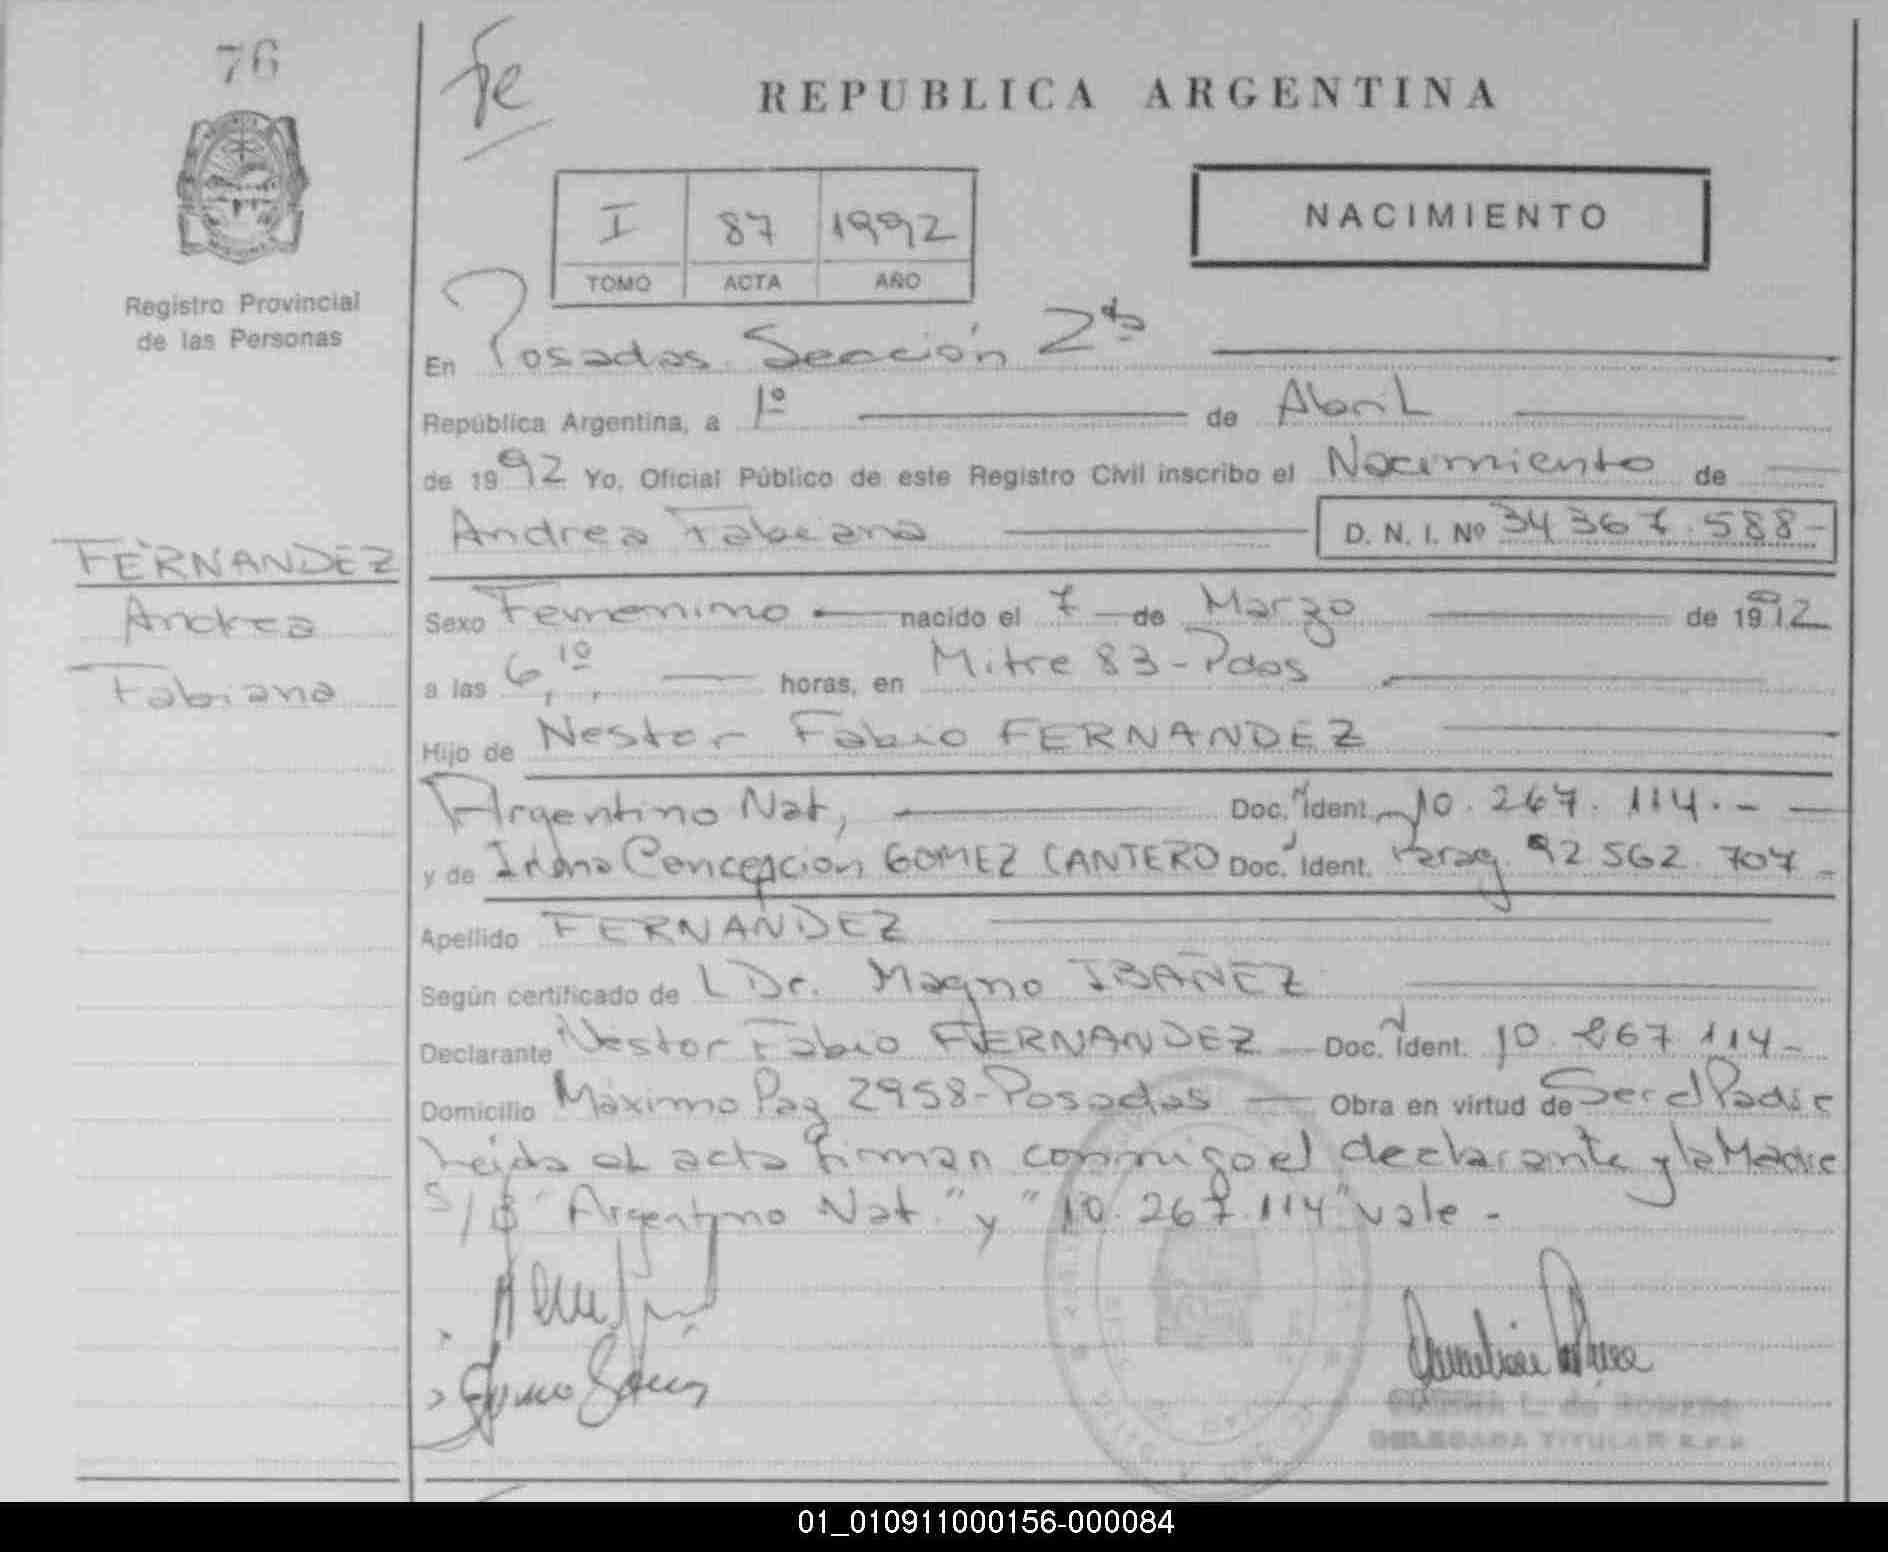 76
Fe
REPUBLICA ARGENTINA
NACIMIENTO
I 87 1992
TOMO ACTA AÑO
Registro Provincial
de las Personas
En Posadas Sección 2da
República Argentina, a 1º de Abril
de 1992 Yo, Oficial Público de este Registro Civil inscribo el Nacimiento de
Andrea Fabiana D. N. I. Nº 34 367.588-
FERNANDEZ
Andrea
Fabiana
Sexo Femenino nacido el 7 de Marzo de 1992
a las 6,10 horas, en Mitre 83-Pdas
Hijo de Nestor Fabio FERNANDEZ
Argentino Nat, Doc. Ident. 10.267.114.-
y de Concepcion GOMEZ CANTERO Doc. Ident. Parag. 92.562.707-
Apellido FERNANDEZ
Según certificado de L Dr. Magno IBAÑEZ
Declarante Nestor Fabio FERNANDEZ Doc. Ident. 10.267.114-
Domicilio Máximo Paz 2958-Posadas Obra en virtud de Ser el Padre
Leida el acta firman conmigo el declarante y la Madre
S/B "Argentino Nat." y "10.267.114" vale-
L. de ROMERO
DELEGADA TITULAR R.P.P.
01_010911000156-000084